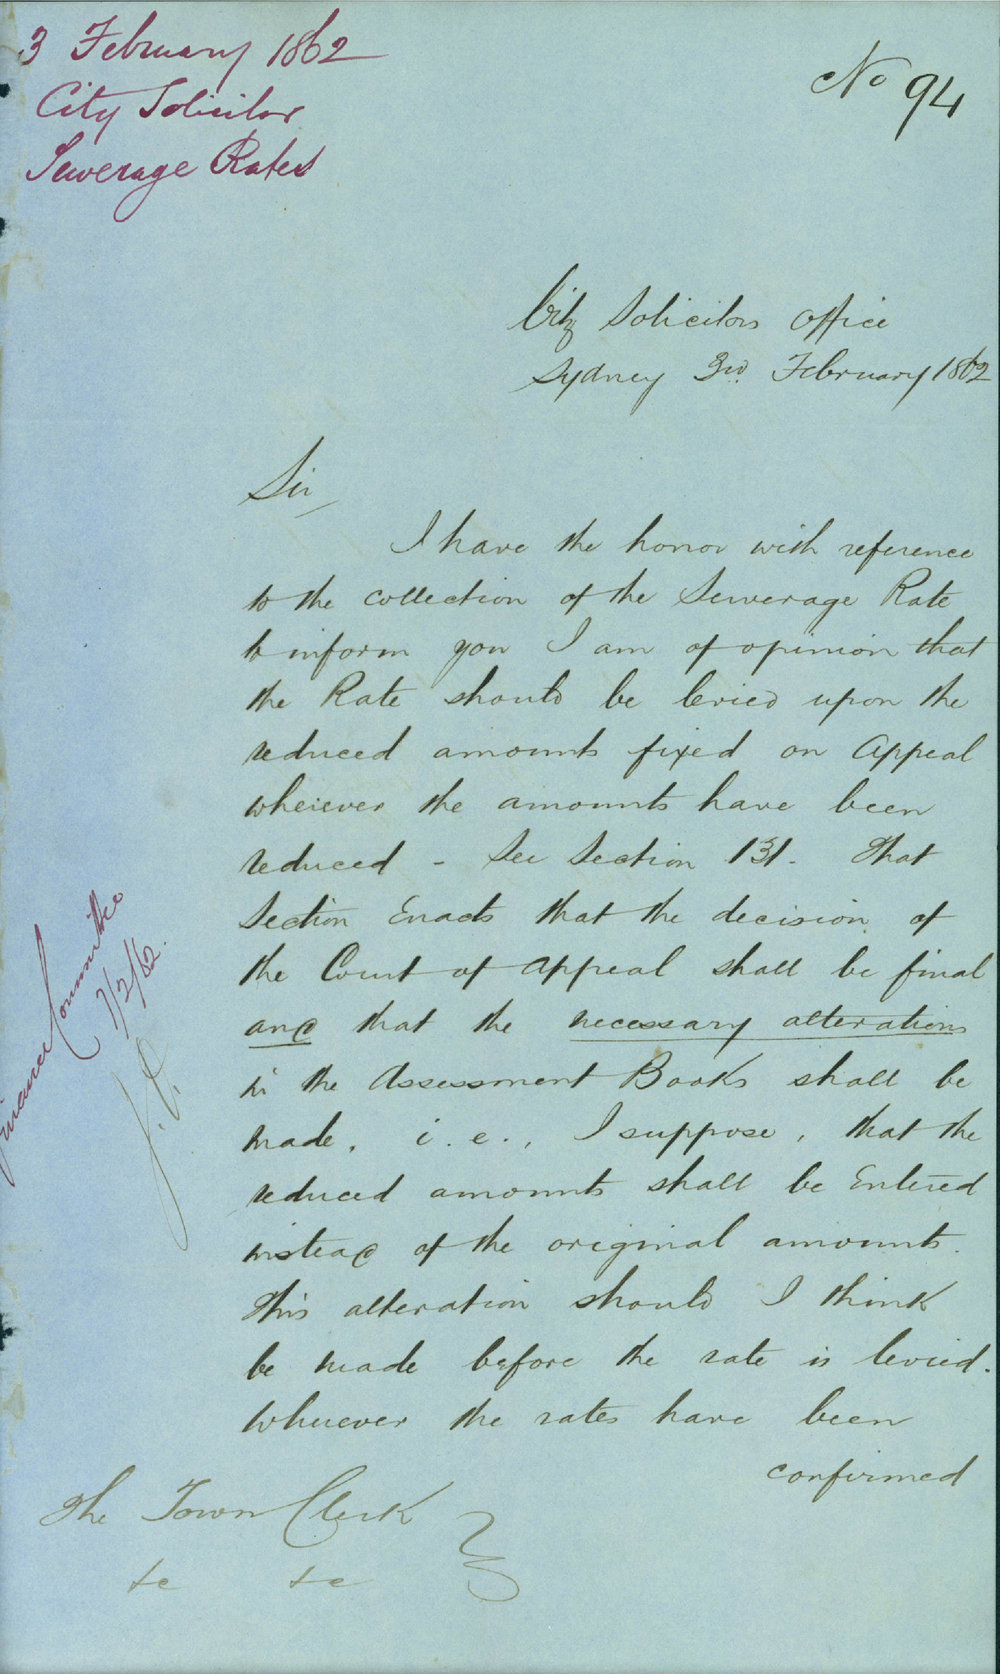 3 February 1862
City Solicitor
Sewerage Rates
No 94
City Solicitors Office
Sydney 3rd. February 1862
Sir,
I have the honor with reference
to the collection of the Sewerage Rate
to inform you I am of opinion that
the Rate should be levied upon the
reduced amounts fixed on Appeal
wherever the amounts have been
reduced - See Section 131. That
Section Enacts that the decision of
the Court of Appeal shall be final
and that the necessary alterations
in the Assessment Books shall be
made, i.e., I suppose, that the
reduced amounts shall be Entered
instead of the original amounts.
This alteration should I think
be made before the rate is levied.
Wherever the rates have been
confirmed
The Town Clerk
&c &c
Finance Committee
7/2/62.